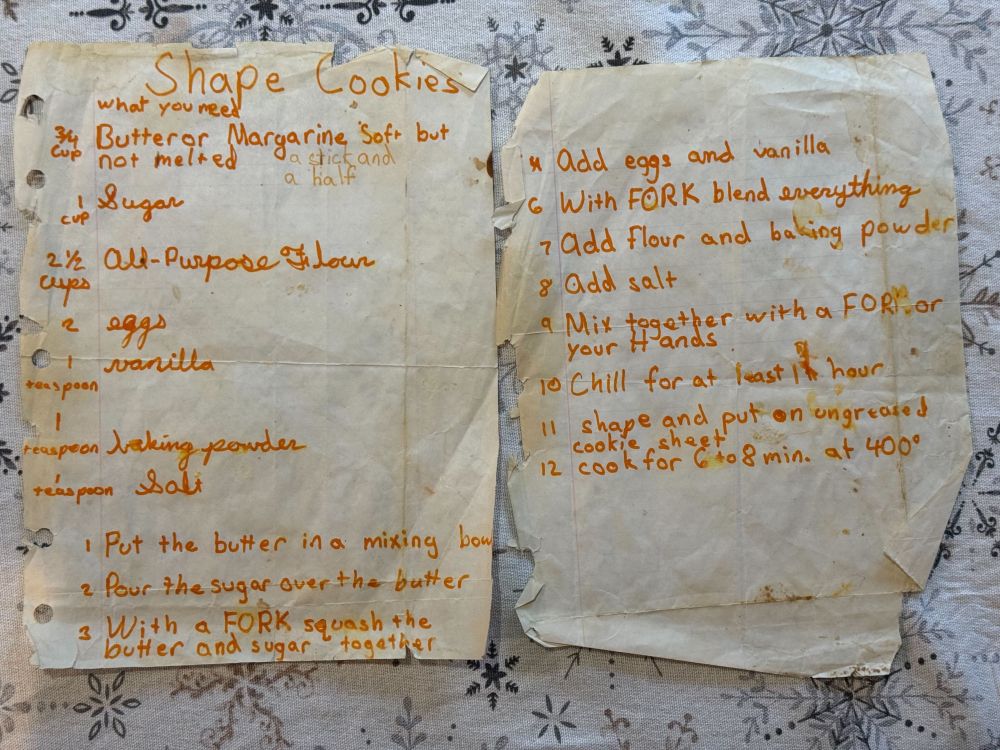 Shape Cookies
what you need
3/4 cup Butter or Margarine Soft but
not melted a stick and
a half
1 cup Sugar
2 1/2 cups All-Purpose Flour
2 eggs
1 teaspoon vanilla
1 teaspoon baking powder
1 teaspoon Salt
1 Put the butter in a mixing bow
2 Pour the sugar over the butter
3 With a FORK squash the
butter and sugar together
4 Add eggs and vanilla
6 With FORK blend everything
7 Add flour and baking powder
8 Add salt
9 Mix together with a FORK or
your Hands
10 Chill for at least 1 hour
11 shape and put on ungreased
cookie sheet
12 cook for 6 to 8 min. at 400°